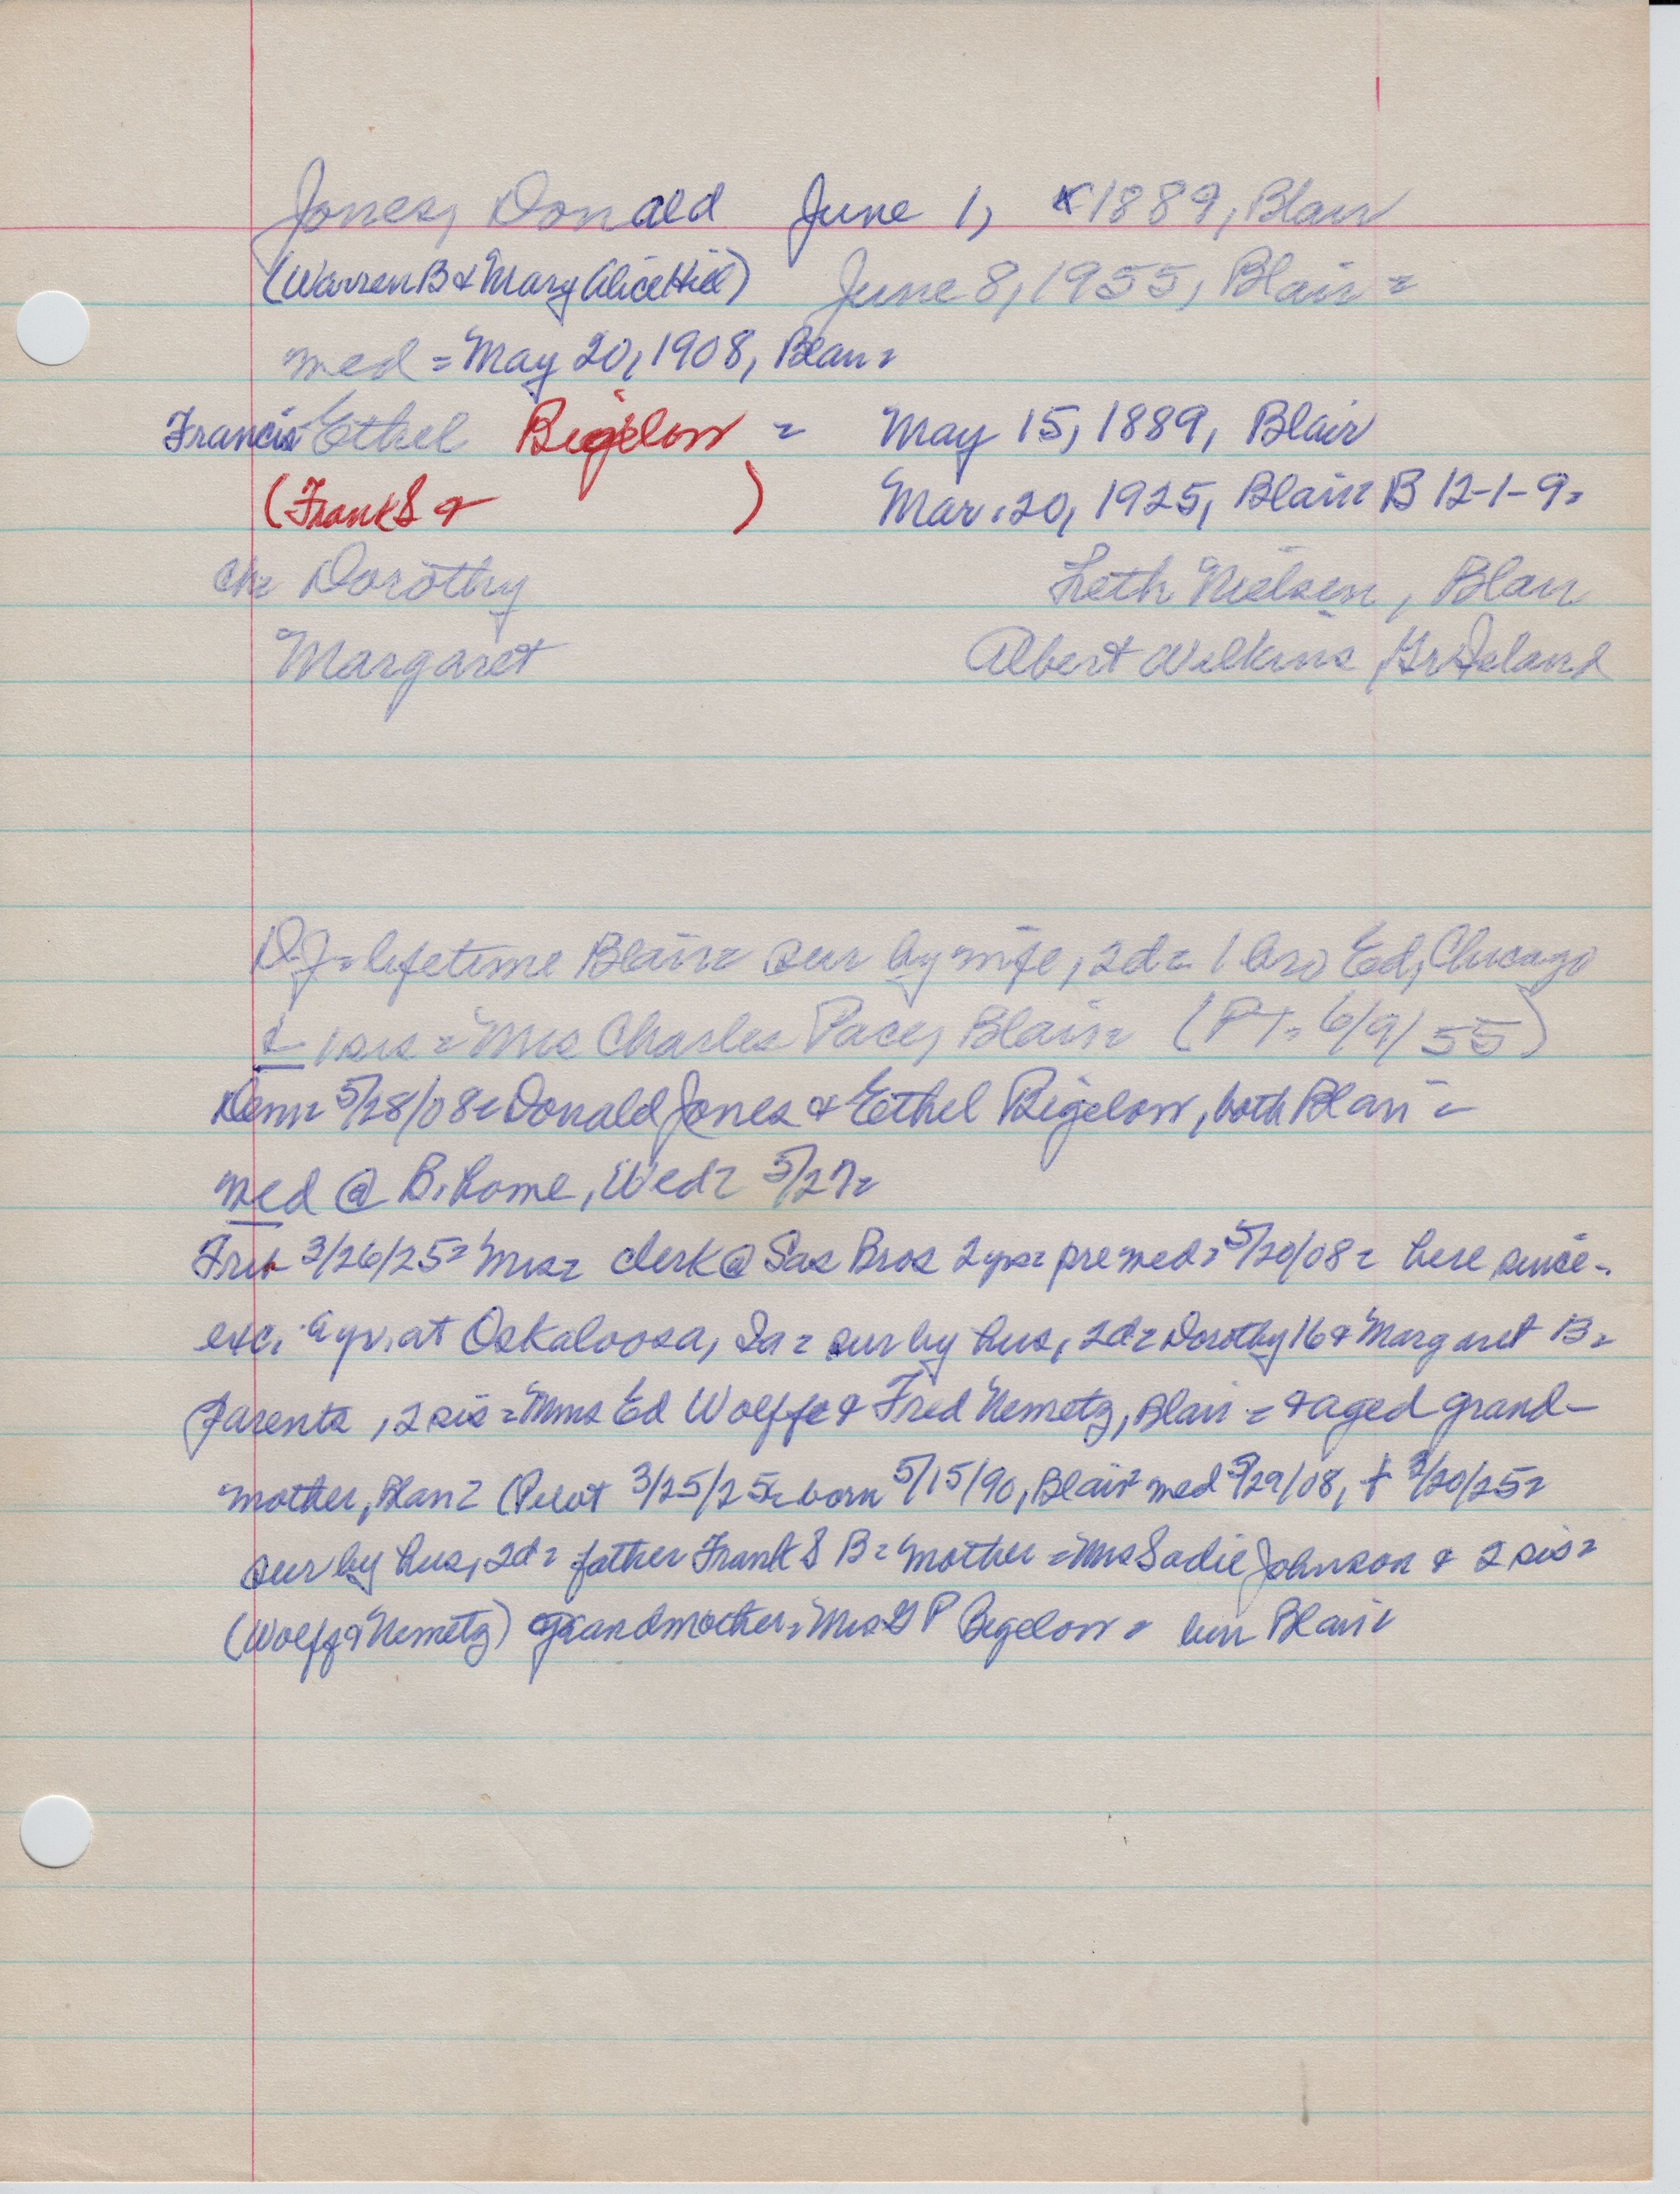 Jones, Donald June 1, 1889, Blair
(Warren B & Mary Alice Hill) June 8, 1955, Blair =
med = May 20, 1908, Blair =
Francis Ethel Bigelow = May 15, 1889, Blair
(Frank S & ) Mar. 20, 1925, Blair = B 12-1-9 =
ch = Dorothy Leth Nielsen, Blair
Margaret Albert Wilkins, Gr Island
DJ = lifetime Blair = sur by wife, 2d = 1 bro Ed, Chicago
& 1 sis = Mrs Charles Pace, Blair = (PT = 6/9/55)
Dem = 5/28/08 = Donald Jones & Ethel Bigelow, both Blair =
med @ B. home, Wed = 5/27 =
Trib 3/26/25 = Mrs = clerk @ Sas Bros 2 yrs = pre med = 5/20/08 = here since -
exc. yr. at Oskaloosa, Ia = sur by hus, 2d = Dorothy 16 & Margaret 13 =
parents, 2 sis = Mms Ed Wolff & Fred Nemetz, Blair = & aged grand-
mother, Blair = (Pilot 3/25/25 = born 5/15/90, Blair = med 5/29/08, † 3/20/25 =
sur by hus, 2d = father Frank S B = mother = Mrs Sadie Johnson & 2 sis =
(Wolff & Nemetz) grandmother = Mrs G P Bigelow = Blair =